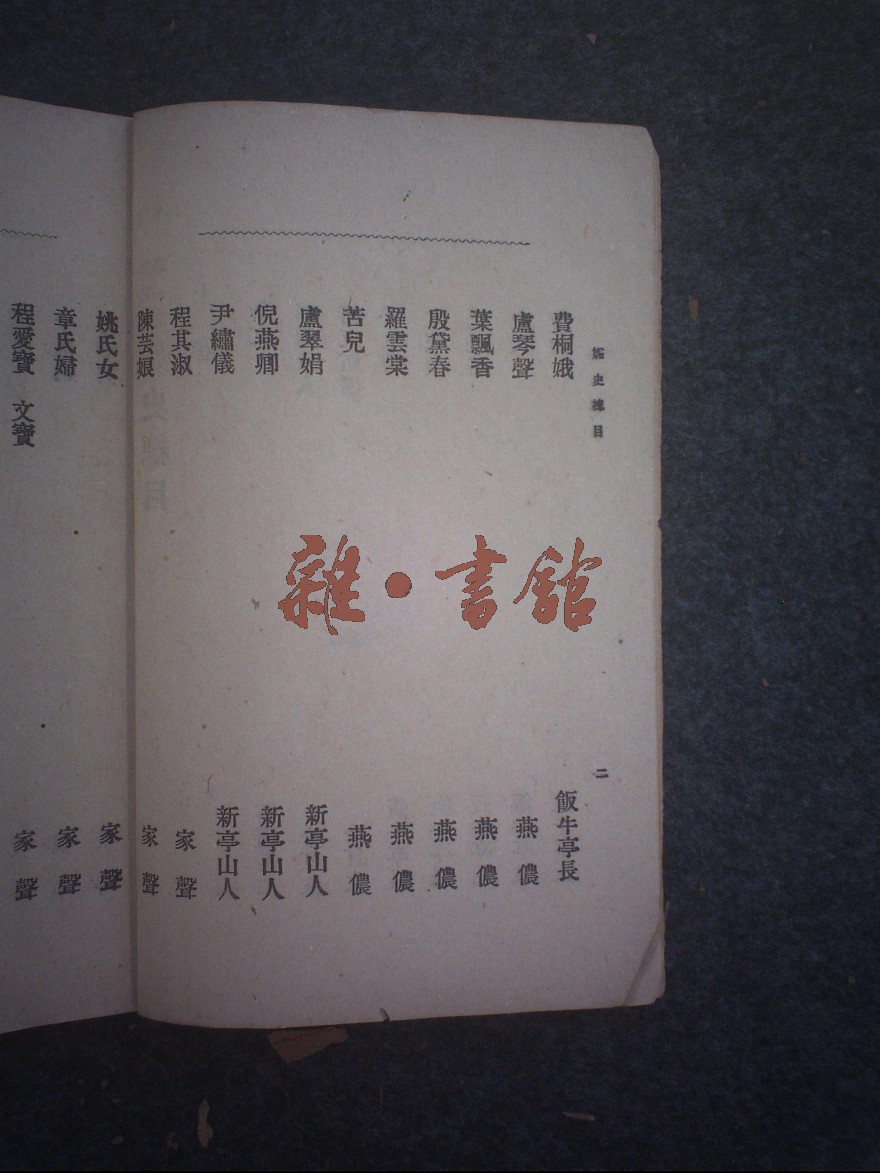 媍史總目
二
費桐娥 飯牛亭長
盧琴聲 燕儂
葉飄香 燕儂
殷黛春 燕儂
羅雲棠 燕儂
苦兒 燕儂
盧翠娟 新亭山人
倪燕卿 新亭山人
尹繡儀 新亭山人
程其淑 家聲
陳芸娘 家聲
姚氏女 家聲
章氏婦 家聲
程愛寶 文寶 家聲
雜·書館